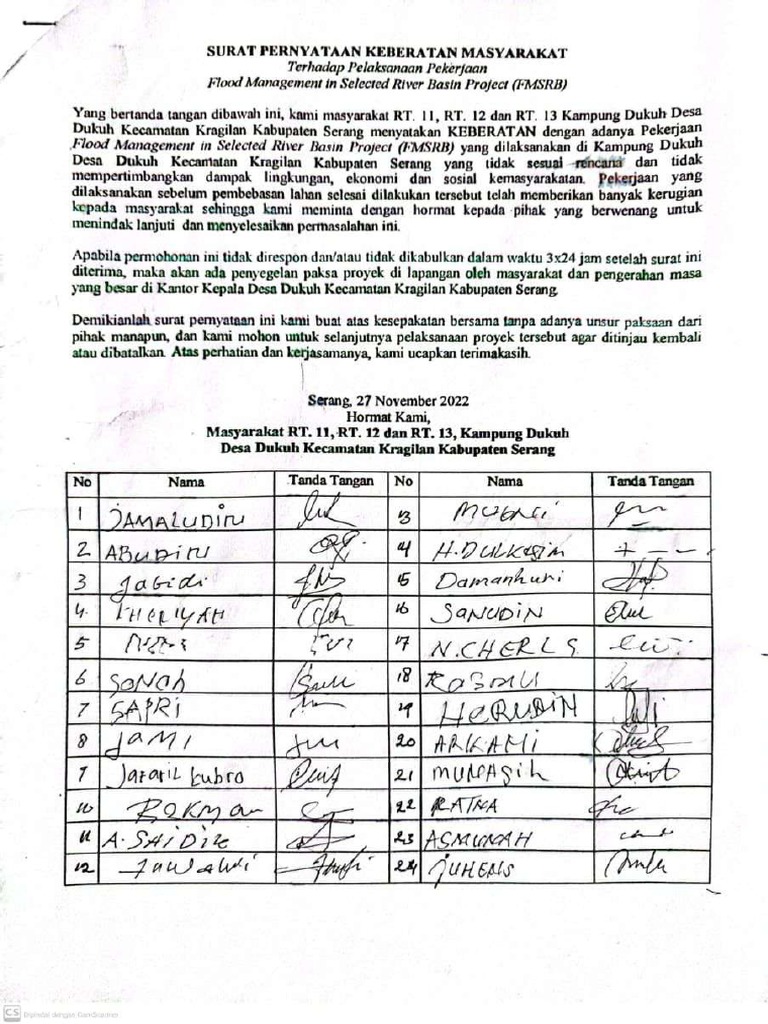 SURAT PERNYATAAN KEBERATAN MASYARAKAT
Terhadap Pelaksanaan Pekerjaan
Flood Management in Selected River Basin Project (FMSRB)
Yang bertanda tangan dibawah ini, kami masyarakat RT. 11, RT. 12 dan RT. 13 Kampung Dukuh Desa
Dukuh Kecamatan Kragilan Kabupaten Serang menyatakan KEBERATAN dengan adanya Pekerjaan
Flood Management in Selected River Basin Project (FMSRB) yang dilaksanakan di Kampung Dukuh
Desa Dukuh Kecamatan Kragilan Kabupaten Serang yang tidak sesuai rencana dan tidak
mempertimbangkan dampak lingkungan, ekonomi dan sosial kemasyarakatan. Pekerjaan yang
dilaksanakan sebelum pembebasan lahan selesai dilakukan tersebut telah memberikan banyak kerugian
kepada masyarakat sehingga kami meminta dengan hormat kepada pihak yang berwenang untuk
menindak lanjuti dan menyelesaikan permasalahan ini.
Apabila permohonan ini tidak direspon dan/atau tidak dikabulkan dalam waktu 3x24 jam setelah surat ini
diterima, maka akan ada penyegelan paksa proyek di lapangan oleh masyarakat dan pengerahan masa
yang besar di Kantor Kepala Desa Dukuh Kecamatan Kragilan Kabupaten Serang.
Demikianlah surat pernyataan ini kami buat atas kesepakatan bersama tanpa adanya unsur paksaan dari
pihak manapun, dan kami mohon untuk selanjutnya pelaksanaan proyek tersebut agar ditinjau kembali
atau dibatalkan. Atas perhatian dan kerjasamanya, kami ucapkan terimakasih.
Serang, 27 November 2022
Hormat Kami,
Masyarakat RT. 11, RT. 12 dan RT. 13, Kampung Dukuh
Desa Dukuh Kecamatan Kragilan Kabupaten Serang
No Nama Tanda Tangan No Nama Tanda Tangan
1 JAMALUDIN 13
2 ABUDIN 14 H. DULKASIM
3 Jabidi 15 Damanhuri
4. KHERIYAH 16 SANUDIN
5 17
6 SONAH 18
7 SAPRI 19 HERUDIN
8 JAMI 20 ARKAMI
9 Jafaril kubro 21 MUNASIH
10 ROKMAN 22 RATNA
11 23 ASMUNAH
12 24
CS Dipindai dengan CamScanner